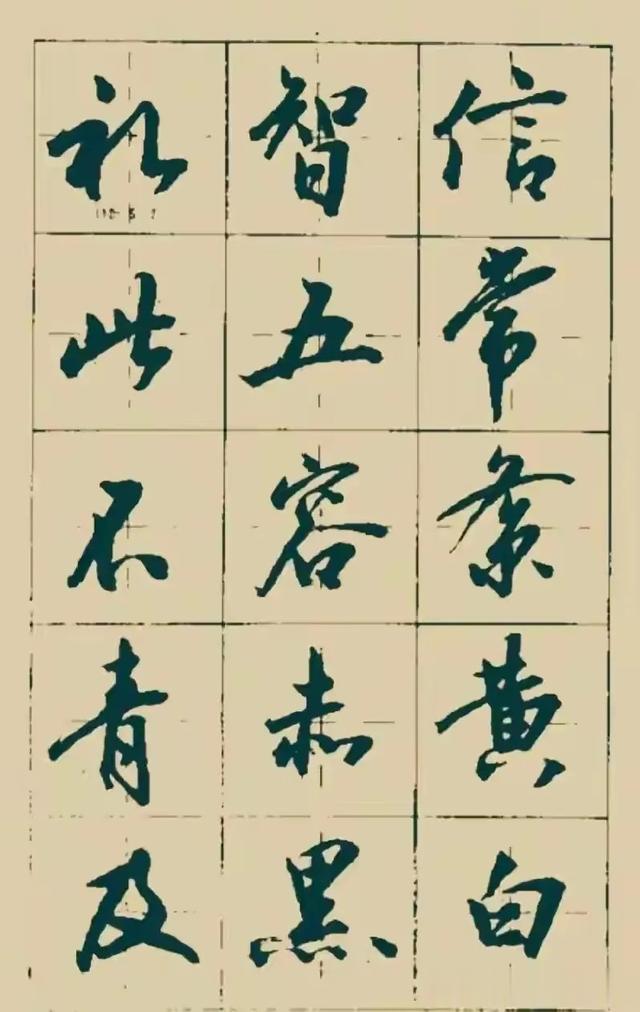 礼智信
此五常
不容紊
青赤黄
及黑白